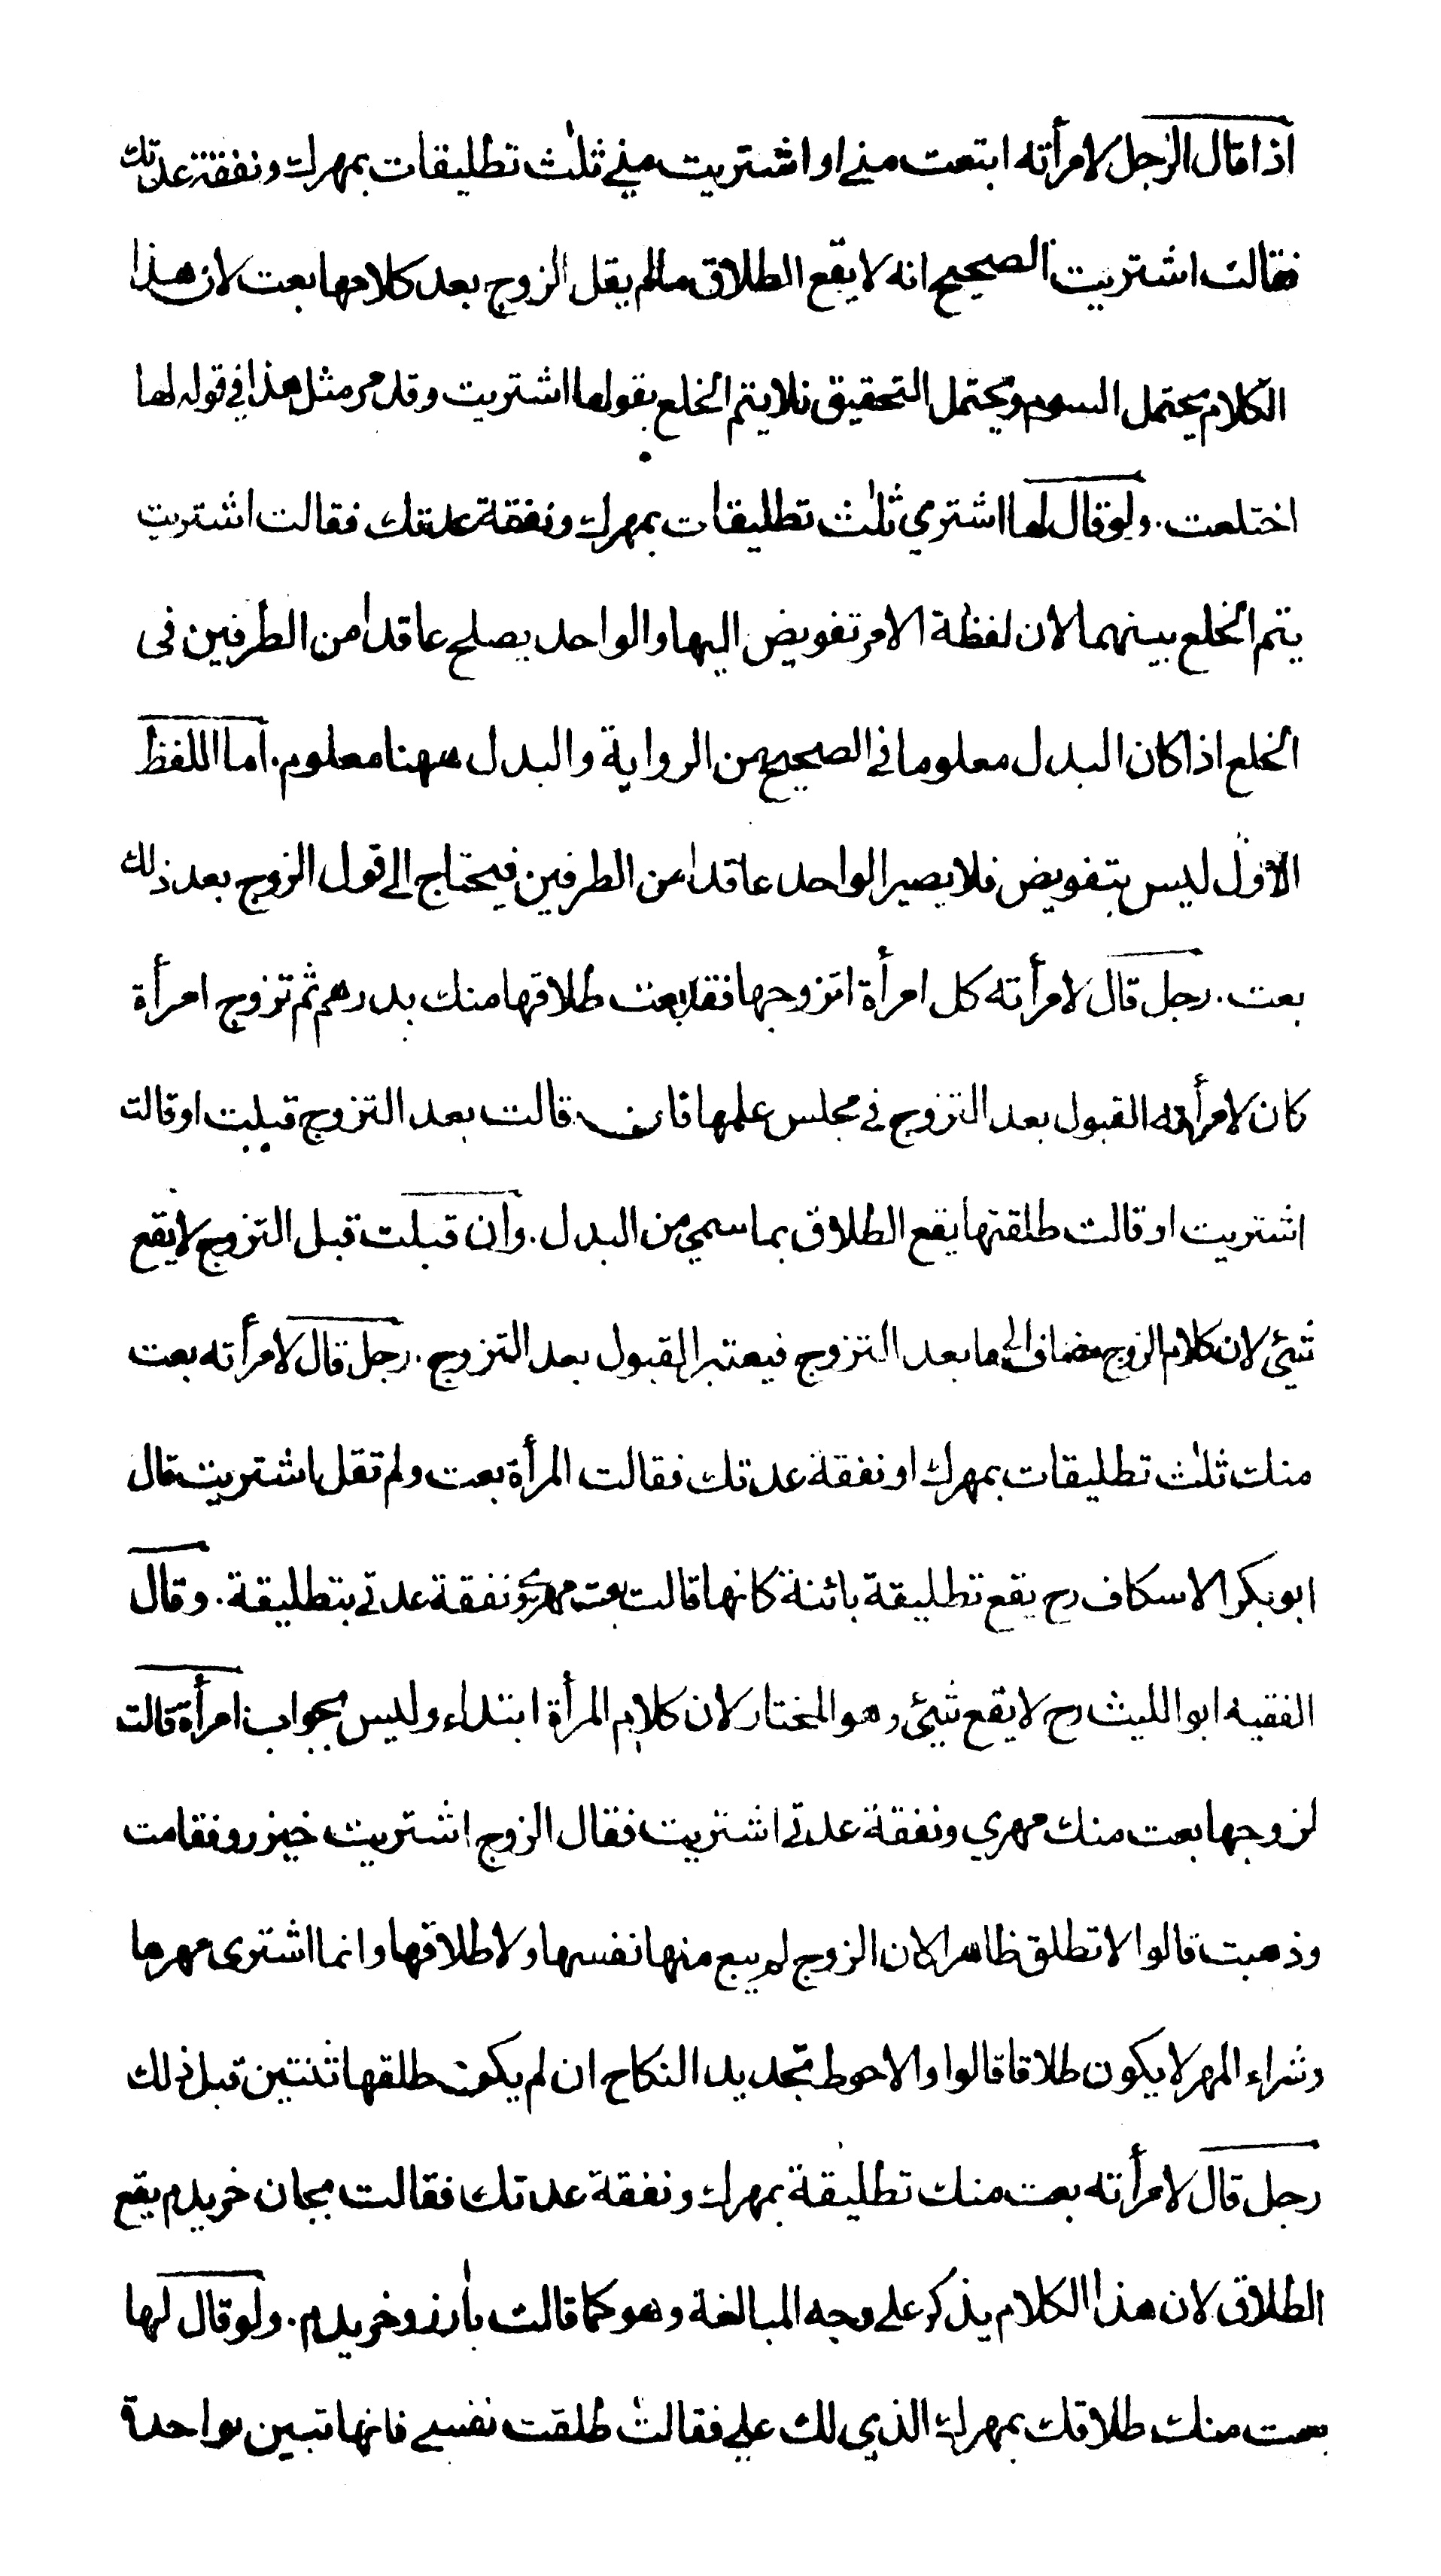 اذا قال الرجل لامرأته ابتعت مني او اشتريت مني ثلٰث تطليقات بمهرك ونفقة عدتك
فقالت اشتريت الصحيح انه لا يقع الطلاق مالم يقل الزوج بعد كلامها بعت لان هذا
الكلام يحتمل السوم ويحتمل التحقيق فلا يتم الخلع بقولها اشتريت وقد مر مثل هذا في قوله لها
اختلعت . ولو قال لها اشتري ثلٰث تطليقات بمهرك ونفقة عدتك فقالت اشتريت
يتم الخلع بينهما لان لفظة الامر تفويض اليها والواحد يصلح عاقدا من الطرفين فى
الخلع اذا كان البدل معلوما في الصحيح من الرواية والبدل ههنا معلوم . اما اللفظ
الاول ليس بتفويض فلا يصير الواحد عاقدا من الطرفين فيحتاج الى قول الزوج بعد ذلك
بعت . رجل قال لامرأته كل امرأة اتزوجها فقد بعت طلاقها منك بدرهم ثم تزوج امرأة
كان لامرأته القبول بعد التزوج في مجلس علمها فان قالت بعد التزوج قبلت او قالت
اشتريت او قالت طلقتها يقع الطلاق بما سمي من البدل . وان قبلت قبل التزوج لا يقع
شيئ لان كلام الزوج مضاف الى ما بعد التزوج فيعتبر القبول بعد التزوج . رجل قال لامرأته بعت
منك ثلٰث تطليقات بمهرك او نفقة عدتك فقالت المرأة بعت ولم تقل اشتريت قال
ابو بكر الاسكاف رح يقع تطليقة بائنة كانها قالت بعت مهري ونفقة عدتي بتطليقة . وقال
الفقيه ابو الليث رح لا يقع شيئ وهو المختار لان كلام المرأة ابتداء وليس بجواب امرأة قالت
لزوجها بعت منك مهري ونفقة عدتي اشتريت فقال الزوج اشتريت خيز رو فقامت
وذهبت قالوا لا تطلق ظاهرا لان الزوج لم يبع منها نفسها ولا طلاقها وانما اشترى مهرها
وشراء المهر لا يكون طلاقا قالوا والاحوط تجديد النكاح ان لم يكن طلقها ثنتين قبل ذلك
رجل قال لامرأته بعت منك تطليقة بمهرك ونفقة عدتك فقالت بجان خريدم يقع
الطلاق لان هذا الكلام يذكر على وجه المبالغة وهو كما قالت بارزو خريدم . ولو قال لها
بعت منك طلاقك بمهرك الذي لك علي فقالت طلقت نفسي فانها تبين بواحدة